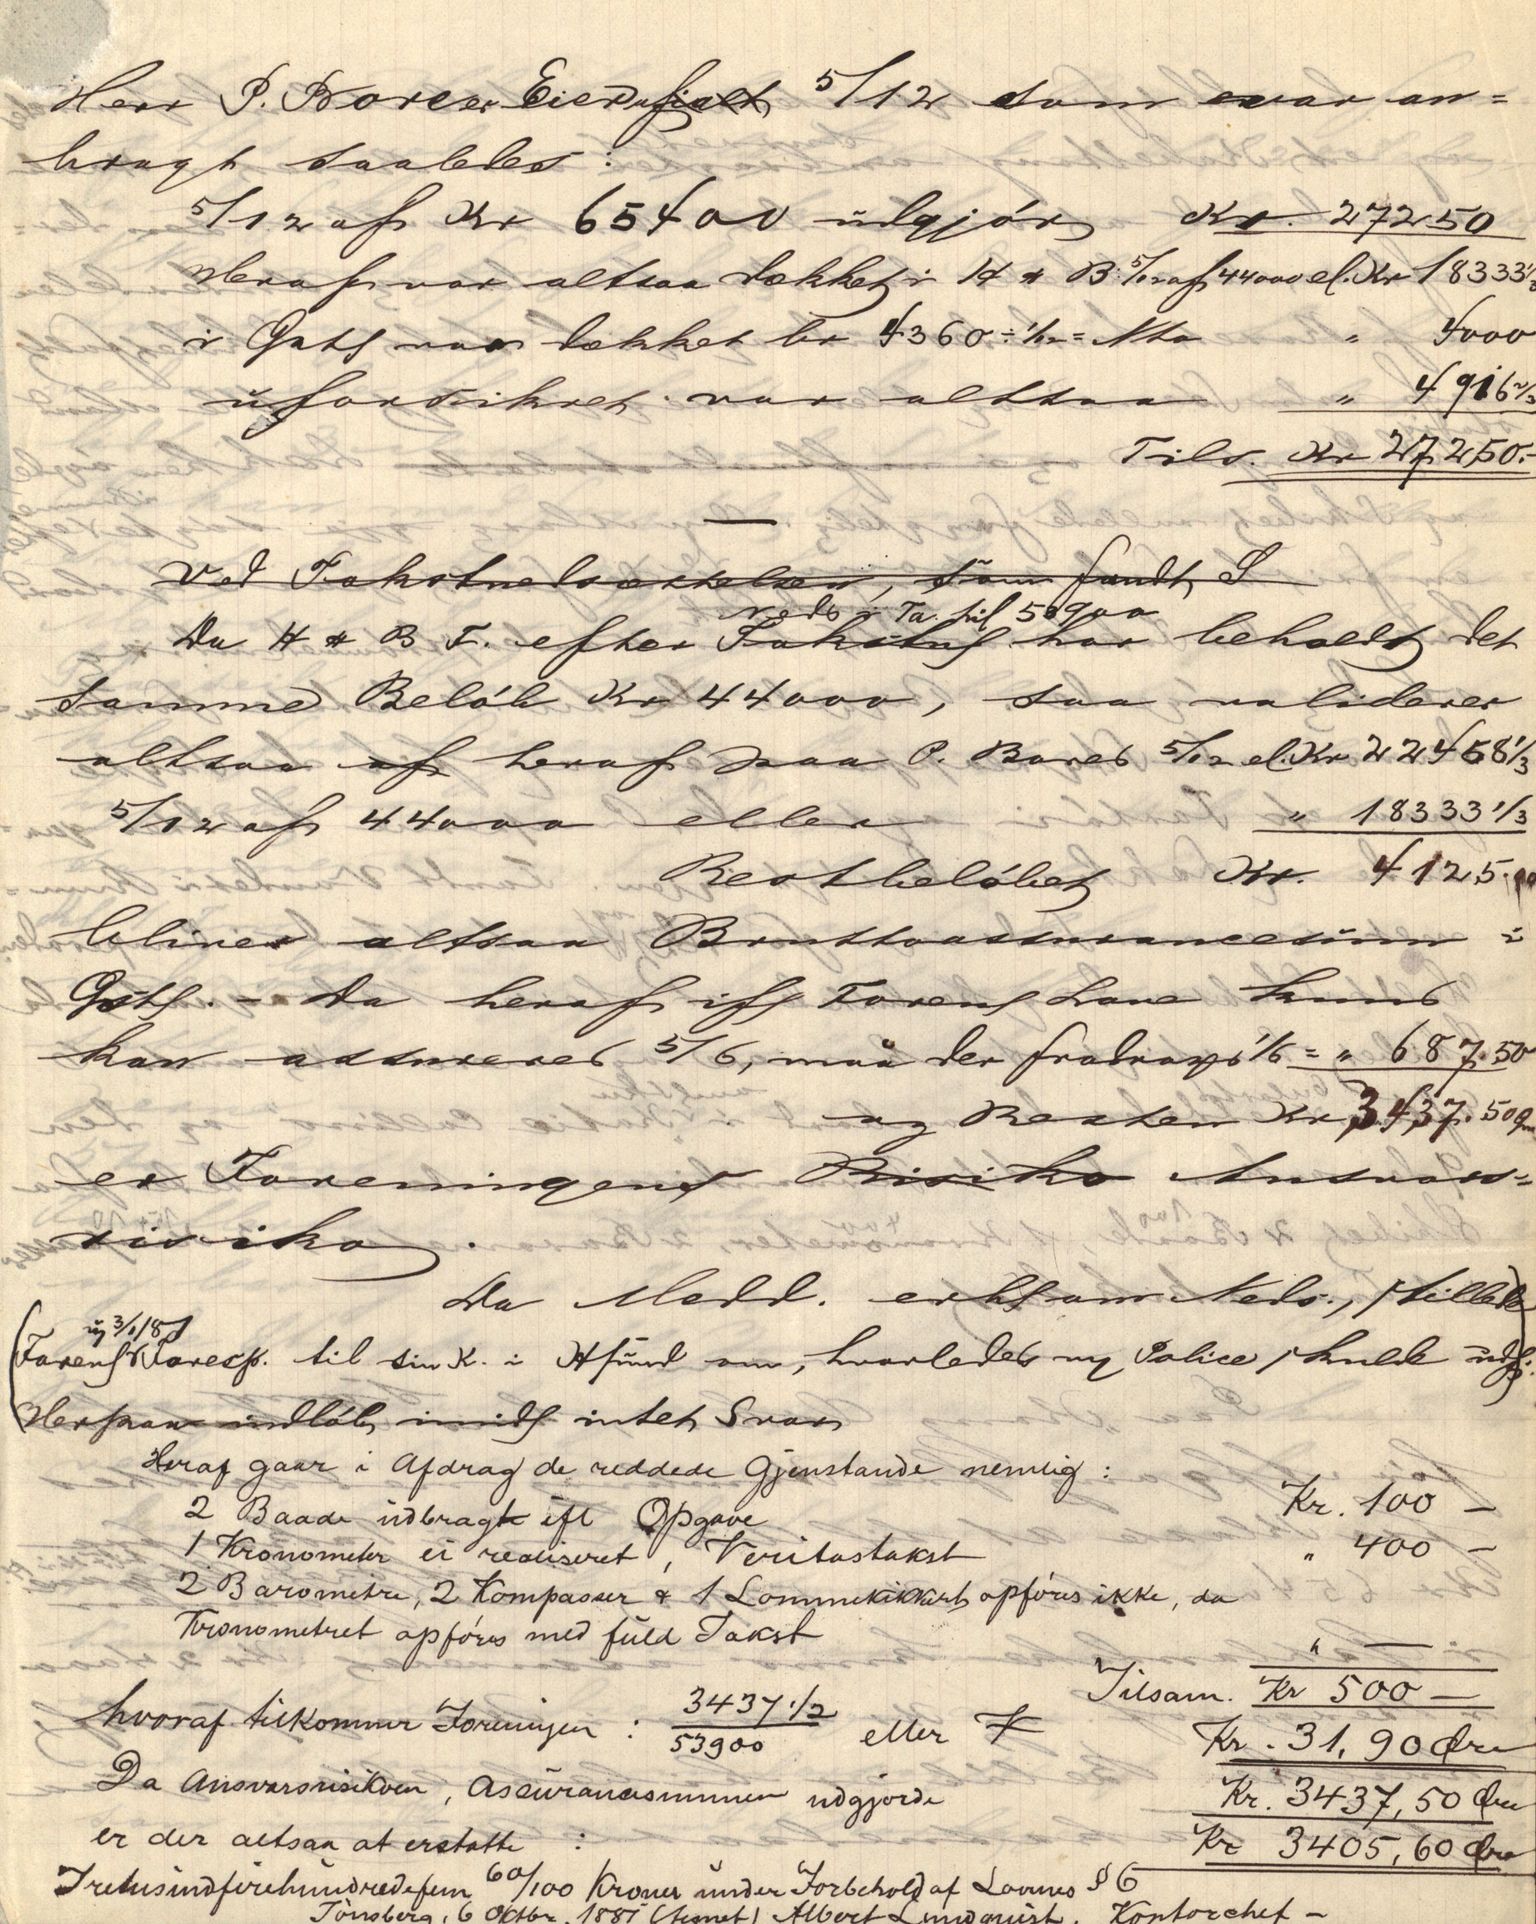 Herr P. Bores Eierd 5/12 som var an-
bragt saaledes:
5/12 af Kr 65400 udgjör Kr. 27250
Heraf var altsaa dækket i H & B 5/12 af 44000 el. Kr 18333 1/3
i Gjsts var dækket br 4360 ÷ 1/12 = Nto " 4000
uforsikret var altsaa " 4916 2/3
Tils. Kr 27250.-
Ved Takstnedsættelsen, som fandt S
neds. i Ta. til 53900
Da H & B F. efter Takstns har beholdt det
samme Belöb Kr 44000, saa validerer
altsaa af heraf paa P. Bores 5/12 el. Kr 22458 1/3
5/12 af 44000 eller " 18333 1/3
Restbelöbet Kr. 4125.00
bliver altsaa Bruttoassurancesum i
Gjsts. - Da heraf ifl Forens Love kuns
kan assureres 5/6, maa der fradrags 1/6 = " 687.50
og Resten Kr 3437.50
er Foreningens Risiko Ansvars-
risiko.
Da Medd. erholdt om Neds., stillede
3/1/81
Forens Foresp. til sin K. i Hsund om, hvorledes ny Police skulde udf.
Herpaa indlöb imidl intet Svar
Heraf gaar i Afdrag de reddede Gjenstande nemlig:
2 Baade indbragt ifl Opgave Kr. 100 -
1 Kronometer ei realiseret, Veritastakst " 400 -
2 Barometre, 2 Kompasser & 1 Lommekikkert opföres ikke, da
Kronometret opföres med fuld Takst " —
Tilsam. Kr 500 -
hvoraf tilkommer Foreningen: 3437 1/2 / 53900 eller Kr. 31,90 Öre
Da Ansvarsrisikoen, Assurancesummen udgjorde Kr. 3437,50 Öre
er der altsaa at erstatte: Kr 3405,60 Öre
Tretusindfirehundredefem 60/100 Kroner under Forbehold af Lovenes § 6
Tönsberg, 6 Oktbr. 1881 (tegnet) Albert Lundquist, Kontorchef -